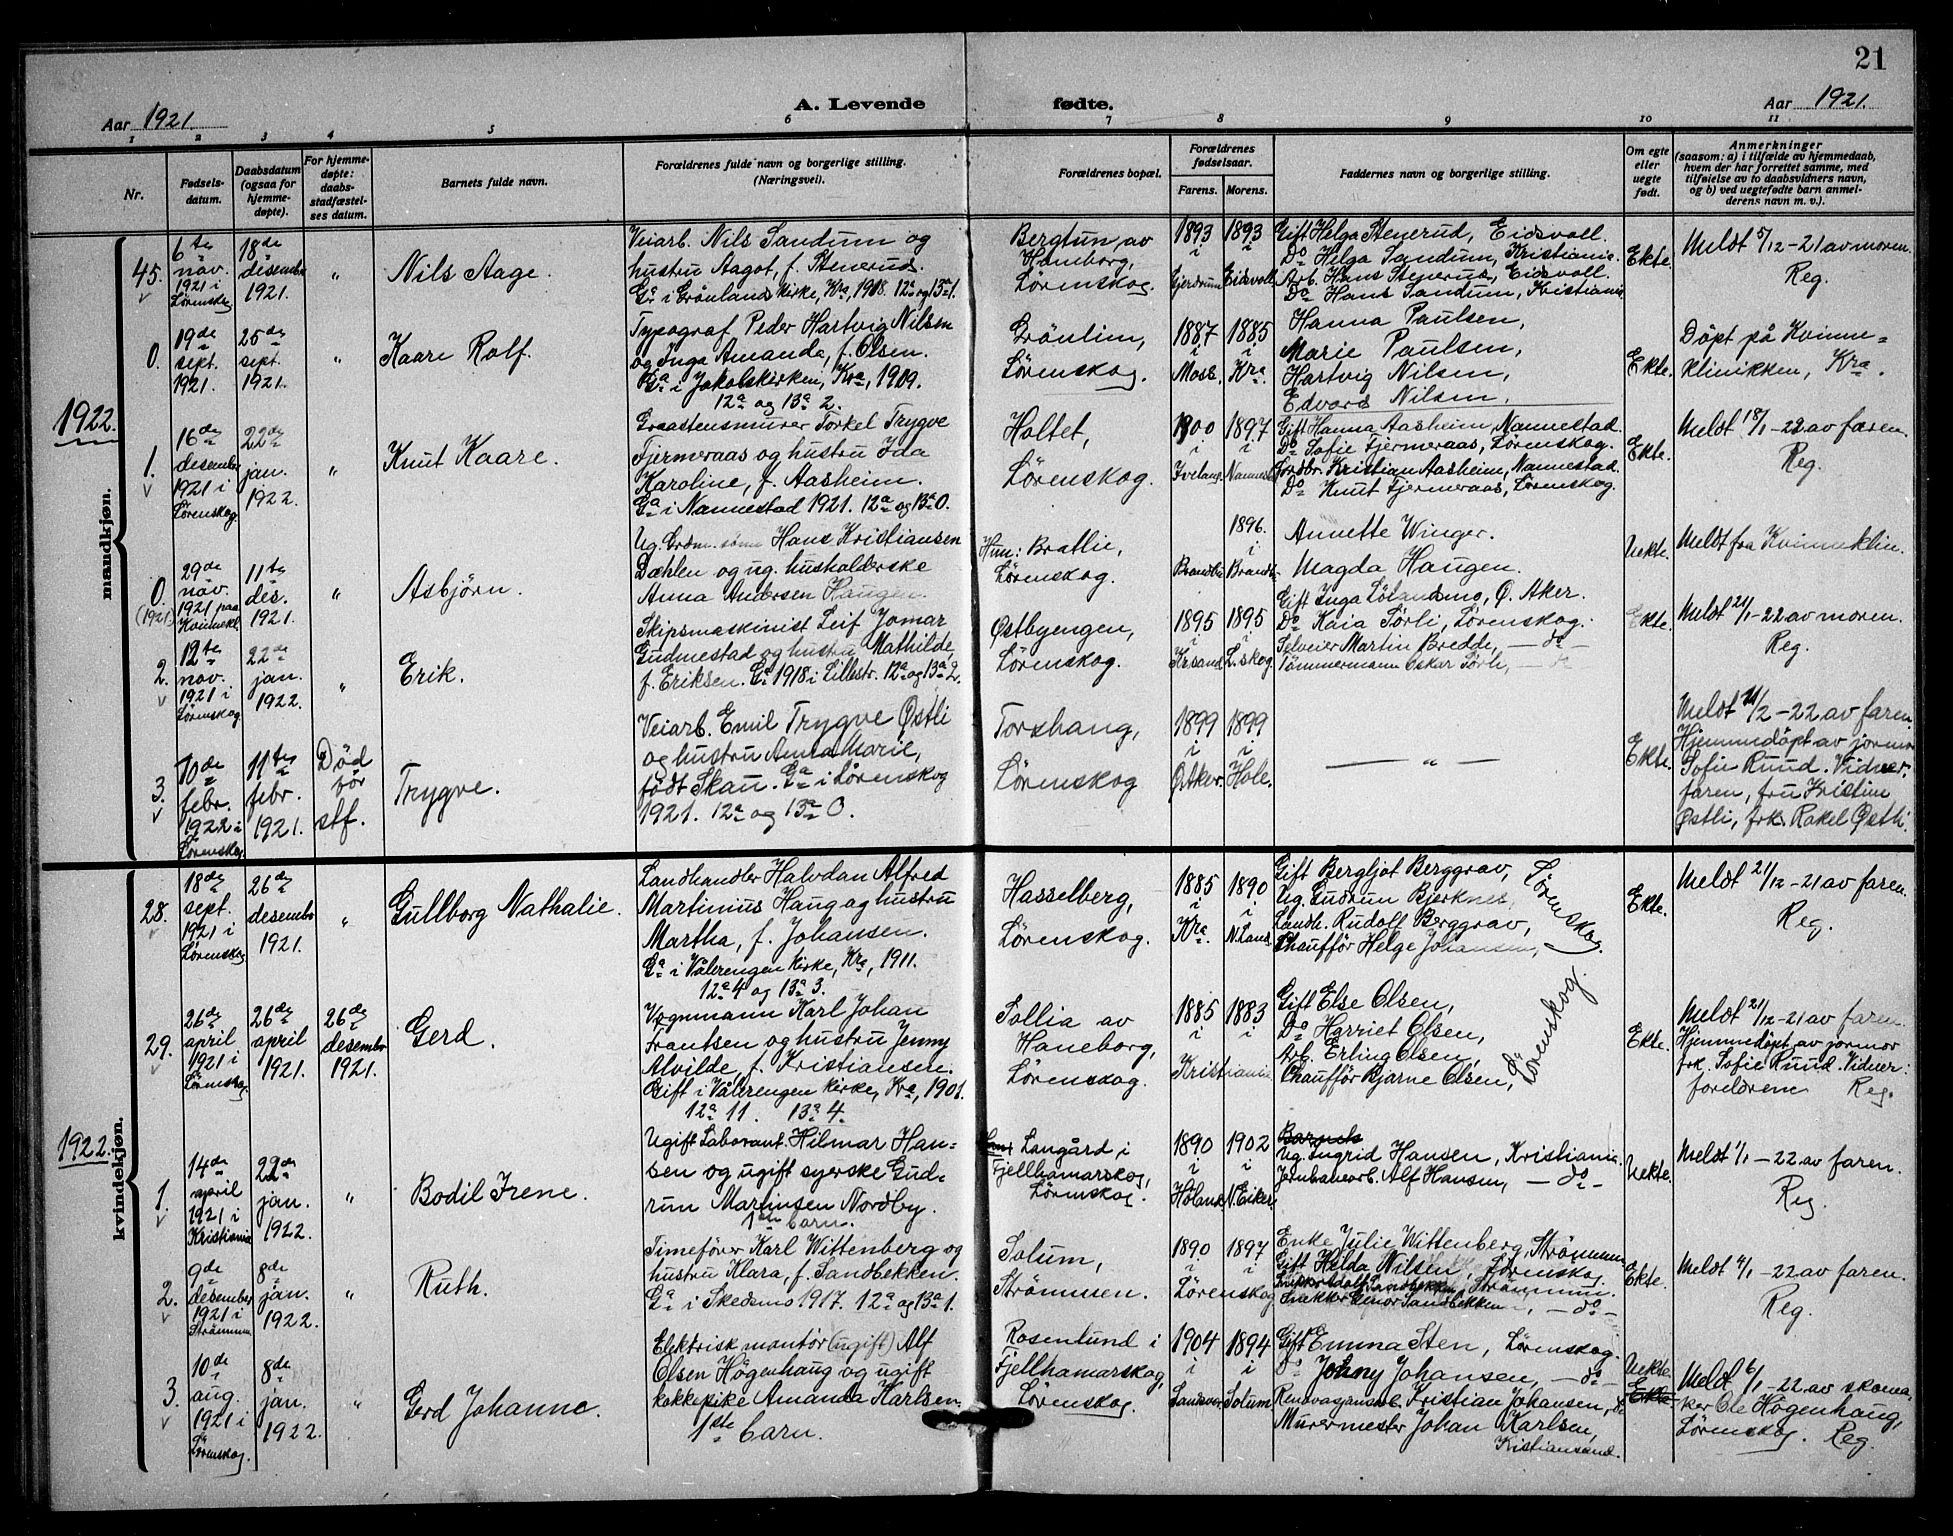 21
Aar 1921.
A. Levende fødte.
Aar 1921.
1 2 3 4 5 6 7 8 9 10 11
Nr.
Fødsels-
datum.
Daabsdatum
(ogsaa for
hjemme-
døpte).
For hjemme-
døpte:
daabs-
stadfæstel-
ses datum.
Barnets fulde navn.
Forældrenes fulde navn og borgerlige stilling.
(Næringsvei).
Forældrenes bopæl.
Forældrenes
fødselsaar.
Farens. Morens.
Faddernes navn og borgerlige stilling.
Om egte
eller
uegte
født.
Anmerkninger
(saasom: a) i tilfælde av hjemmedaab,
hvem der har forrettet samme, med
tilføielse av to daabsvidners navn,
og b) ved uegtefødte barn anmel-
derens navn m. v.).
mandkjøn.
45.
6te
nov.
1921 i
Lørenskog
18de
desember
1921.
"
Nils Aage.
Veiarb. Nils Sandum og
hustru Aagot, f. Stenerud.
Ga i Grönlands kirke, Kra, 1918. 12a og 13a 1.
Bergtun av
Haneborg,
Lørenskog.
1893
i
Gjerdrum
1893
i
Eidsvoll
Gift Helga Stenerud, Eidsvoll.
Do Helga Sandum, Kristiania.
Arb. Hans Stenerud, Eidsvoll.
Do Hans Sandum, Kristiania
Ekte.
Meldt 5/12-21 av moren.
Reg.
0.
19de
sept.
1921.
25de
sept.
1921.
"
Kaare Rolf.
Typograf Peder Hartvig Nilsen
og Inga Amanda, f. Olsen.
Ga i Jakobskirken, Kra, 1909.
12a og 13a 2.
Grönlim,
Lørenskog.
1887
i
Moss.
1885
i
Kra.
Hanna Paulsen,
Marie Paulsen,
Hartvig Nilsen,
Edvard Nilsen.
Ekte.
Døpt på Kvinne=
klinikken, Kra.
1922.
1.
16de
desember
1921 i
Lørenskog.
22de
jan.
1922.
"
Knut Kaare.
Graastensmurer Torkel Trygve
Fjermeraas og hustru Ida
Karoline, f. Aasheim.
Ga i Nannestad 1921. 12a og 13a 0.
Holtet,
Lørenskog.
1900
i
Iveland.
1897
i
Nannestad
Gift Hanna Aasheim, Nannestad.
Do Sofie Fjermeraas, Lørenskog.
Jordbr. Kristian Aasheim, Nannestad.
Do Knut Fjermeraas, Lørenskog.
Ekte.
Meldt 18/1-22 av faren.
Reg.
0.
(1921)
29de
nov.
1921 paa
Kvinnekl.
11te
des.
1921.
"
Asbjørn.
Ug. Hans Kristiansen
Dæhlen og ug. husholderske
Anna Andersen Haugen.
Hun: Bratlie,
Lørenskog.
Brandbu
1896.
i
Brandbu
Annette Winger.
Magda Haugen.
Uekte.
Meldt fra Kvinneklin.
2.
12te
nov.
1921 i
Lørenskog
22de
jan.
1922.
"
Erik.
Skipsmaskinist Leif Jomar
Gudmestad og hustru Mathilde,
f. Eriksen. Ga 1918 i Lillestr. 12a og 13a 2.
Østbyengen,
Lørenskog.
1895
i
Kr.sand
1895
i
L.skog.
Gift Inga Lölandsmo, Ø. Aker.
Do Kaia Sörli, Lørenskog.
Selveier Martin Bredde, — do —
Tømmermann Oskar Sörli, — do
Ekte.
Meldt 21/1-22 av moren.
Reg.
3.
10de
febr.
1922 i
Lørenskog.
11te
febr.
1921.
Død
før
stf.
Trygve.
Veiarb. Emil Trygve Østli
og hustru Anna Marie,
født Skau. Ga i Lørenskog
1921. 12a og 13a 0.
Torshang,
Lørenskog
1899
i
Ø.Aker.
1899
i
Hole.
— " —
Ekte.
Meldt 21/2-22 av faren
Hjemmedøpt av jormor
Sofie Ruud. Vidner:
faren, fru Kristine
Østli, frk. Rakel Østli.
kvindekjøn.
28.
18de
sept.
1921 i
Lørenskog
26de
desember
1921.
"
Gullborg Nathalie.
Landhandler Halvdan Alfred
Martinius Haug og hustru
Martha, f. Johansen.
Ga i Vålerengen kirke, Kra, 1911.
12a 4 og 13a 3.
Hasselberg,
Lørenskog.
1885
i
Kra.
1890
i
N.Land.
Gift Bergljot Berggrav,
Ug. Gudrun Bjerknes,
Landh. Rudolf Berggrav,
Chauffør Helge Johansen,
Lørenskog.
Ekte.
Meldt 21/12-21 av faren.
Reg.
29.
26de
april
1921 i
Lørenskog
26de
april
1921.
26de
desember
1921.
Gerd.
Vognmann Karl Johan
Frantsen og hustru Jenny
Alvilde, f. Kristiansen.
Gift i Vålerengen kirke, Kra, 1901.
12a 11. 13a 4.
Sollia av
Haneborg,
Lørenskog.
1885
i
1883
i
Kristiania
Gift Else Olsen,
Do Harriet Olsen,
Arb. Erling Olsen,
Chauffør Bjarne Olsen,
Lørenskog.
Ekte.
Meldt 21/12-21 av faren.
Hjemmedøpt av jormor
frk. Sofie Ruud. Vidner:
foreldrene Reg.
1922.
1.
14de
april
1921 i
Kristiania
22de
jan.
1922.
"
Bodil Irene.
Ugift Laborant Hilmar Han=
sen og ugift syerske Gud=
run Martinsen Nordby.
1ste barn.
Langård i
Fjellhamarskog,
Lørenskog.
1890
i
Höland
1902
i
N.Eiker.
Barnets
Ug. Ingrid Hansen, Kristiania.
Jernbanearb. Alf Hansen, — do —
Uekte.
Meldt 1/1-22 av faren.
Reg.
2.
9de
desember
1921 i
Strømmen
8de
jan.
1922.
"
Ruth.
Timefører Karl Wittenberg og
hustru Klara, f. Sandbekken.
Ga i Skedsmo 1917. 12a og 13a 1.
Solum,
Strömmen.
1890
i
1897
i
Lörenskog
Enke Julie Wittenberg, Strömmen
Gift Hilda Nilsen, Lørenskog.
Snekker Adolf Sandbekken, Strømmen.
Snekker Sandbekken, — do —
Ekte.
Meldt 4/1-22 av faren.
Reg.
3.
10de
aug.
1921 i
Lørenskog.
8de
jan.
1922.
"
Gerd Johanne.
Elektrisk montør (ugift) Alf
Olsen Högenhaug og ugift
kokkepike Amanda Karlsen.
1ste barn.
Rosenlund i
Fjellhamarskog,
Lørenskog.
1904
i
Sandsvær
1894
i
Solum
Gift Emma Sten, Lörenskog.
Do Johny Johansen, — do —
Kristian Johansen, do
Murermester Johan Karlsen,
Kristiansand.
Uekte
Ekte
Meldt 6/1-22 av skoma=
ker Ole Högenhaug,
Lørenskog. Reg.